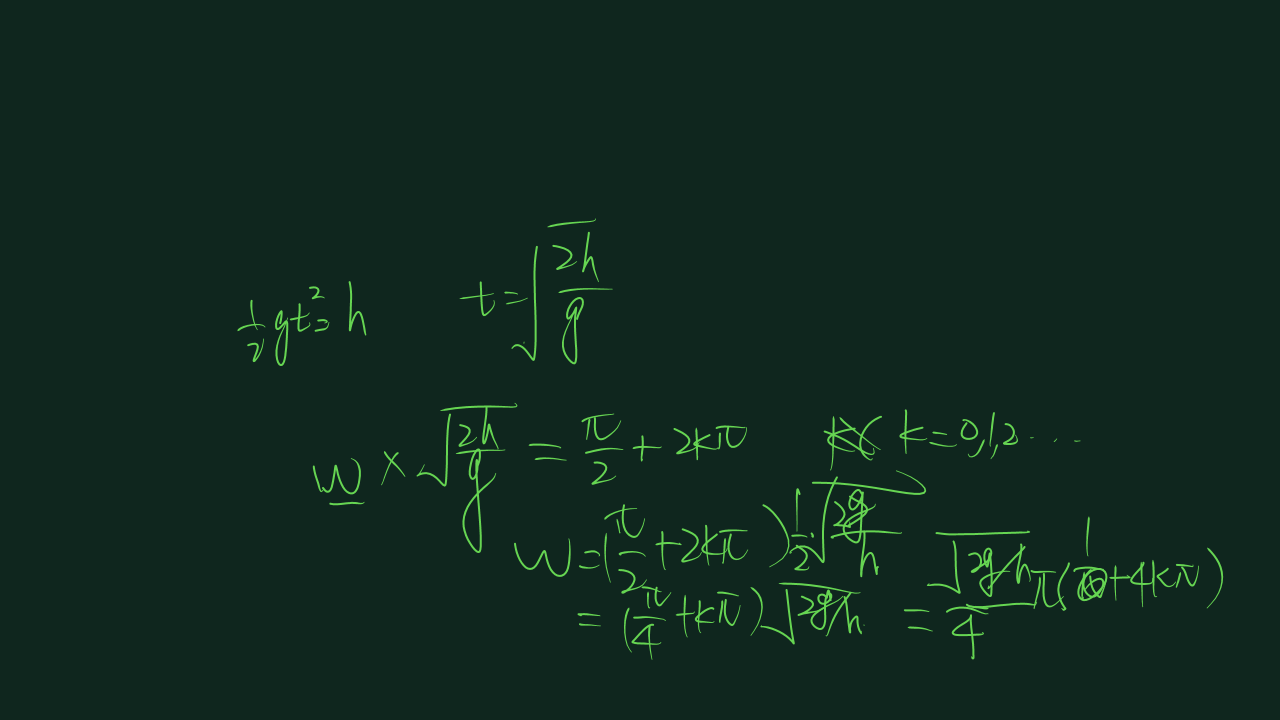 ½gt²=h t=√(2h/g)
w×√(2h/g) = π/2+2kπ k=0,1,2····
w=(π/2+2kπ)½·√(2g/h)
=(π/4+kπ)√(2g/h) = √(2g/h)/4 π(1+4kπ)